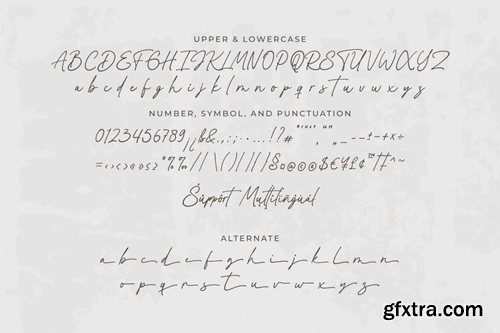 UPPER & LOWERCASE
ABCDEFGHIJKLMNOPQRSTUVWXYZ
abcdefghijklmnopqrstuvwxyz
NUMBER, SYMBOL, AND PUNCTUATION
0123456789¡¿&.,:;·…!?#
Support Multilingual
ALTERNATE
abcdefghijklmn
opqrstuvwxyz
gfxtra.com